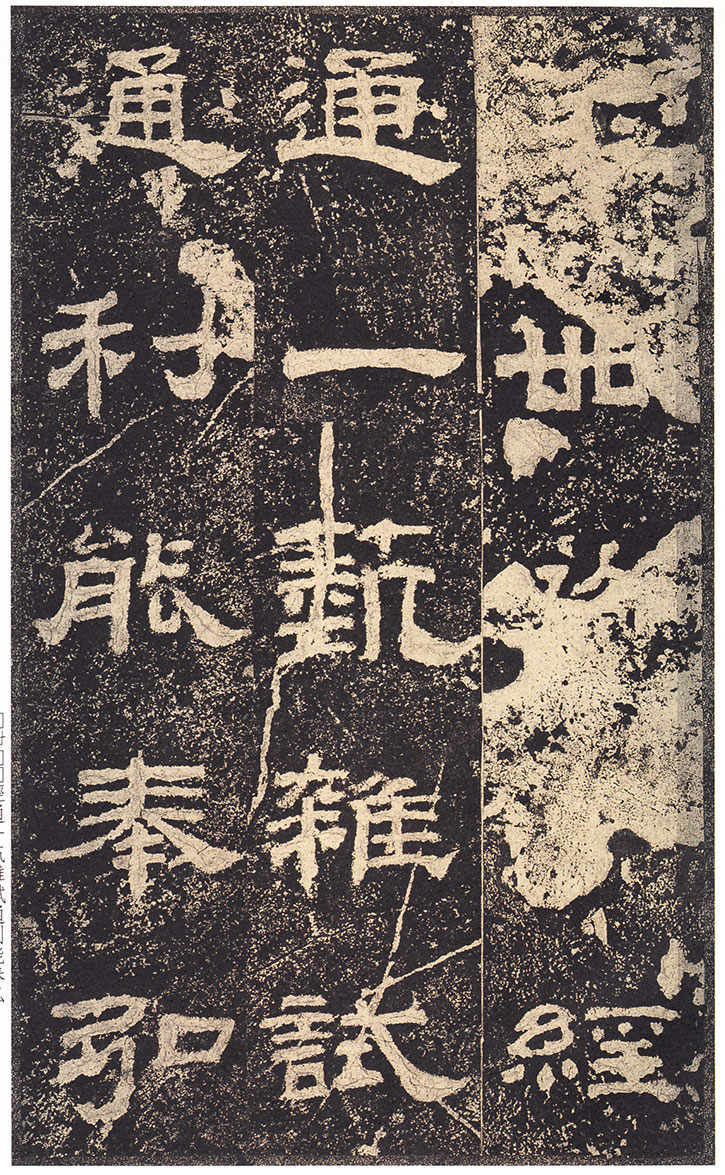 卌經
通一藝雜試
通利能奉弘